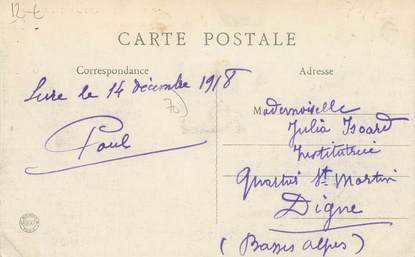 12 €
CARTE POSTALE
Correspondance
Adresse
Lure le 14 décembre 1918
70)
Paul
Mademoiselle
Julia Isoard
Institutrice
Quartier St Martin
Digne
(Basses Alpes)